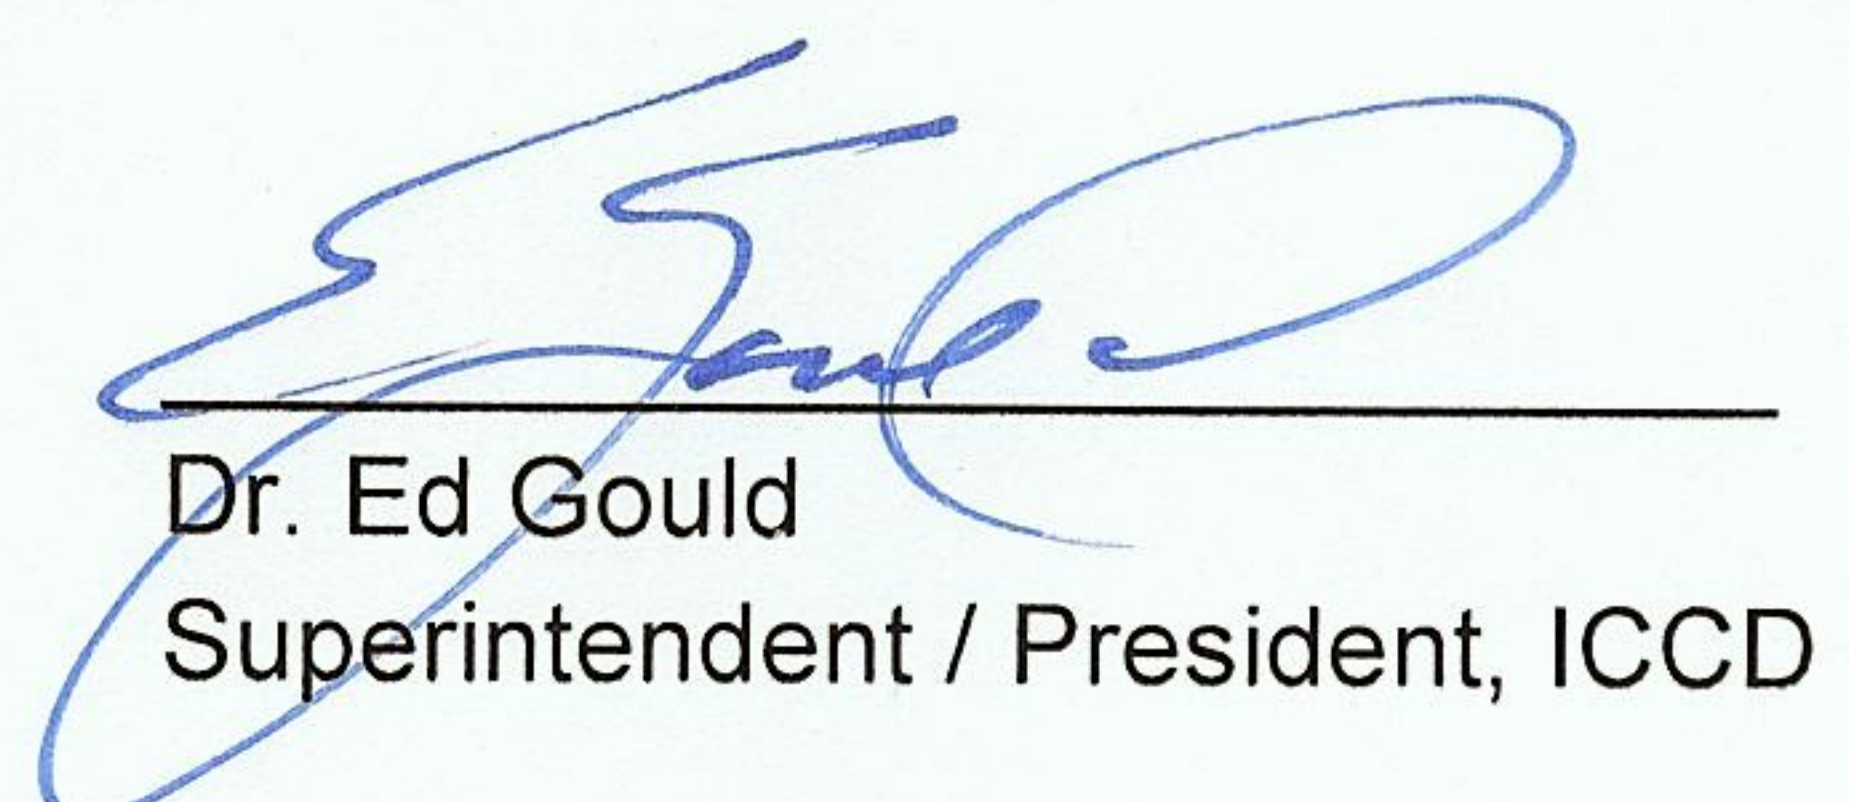 Dr. Ed Gould
Superintendent / President, ICCD